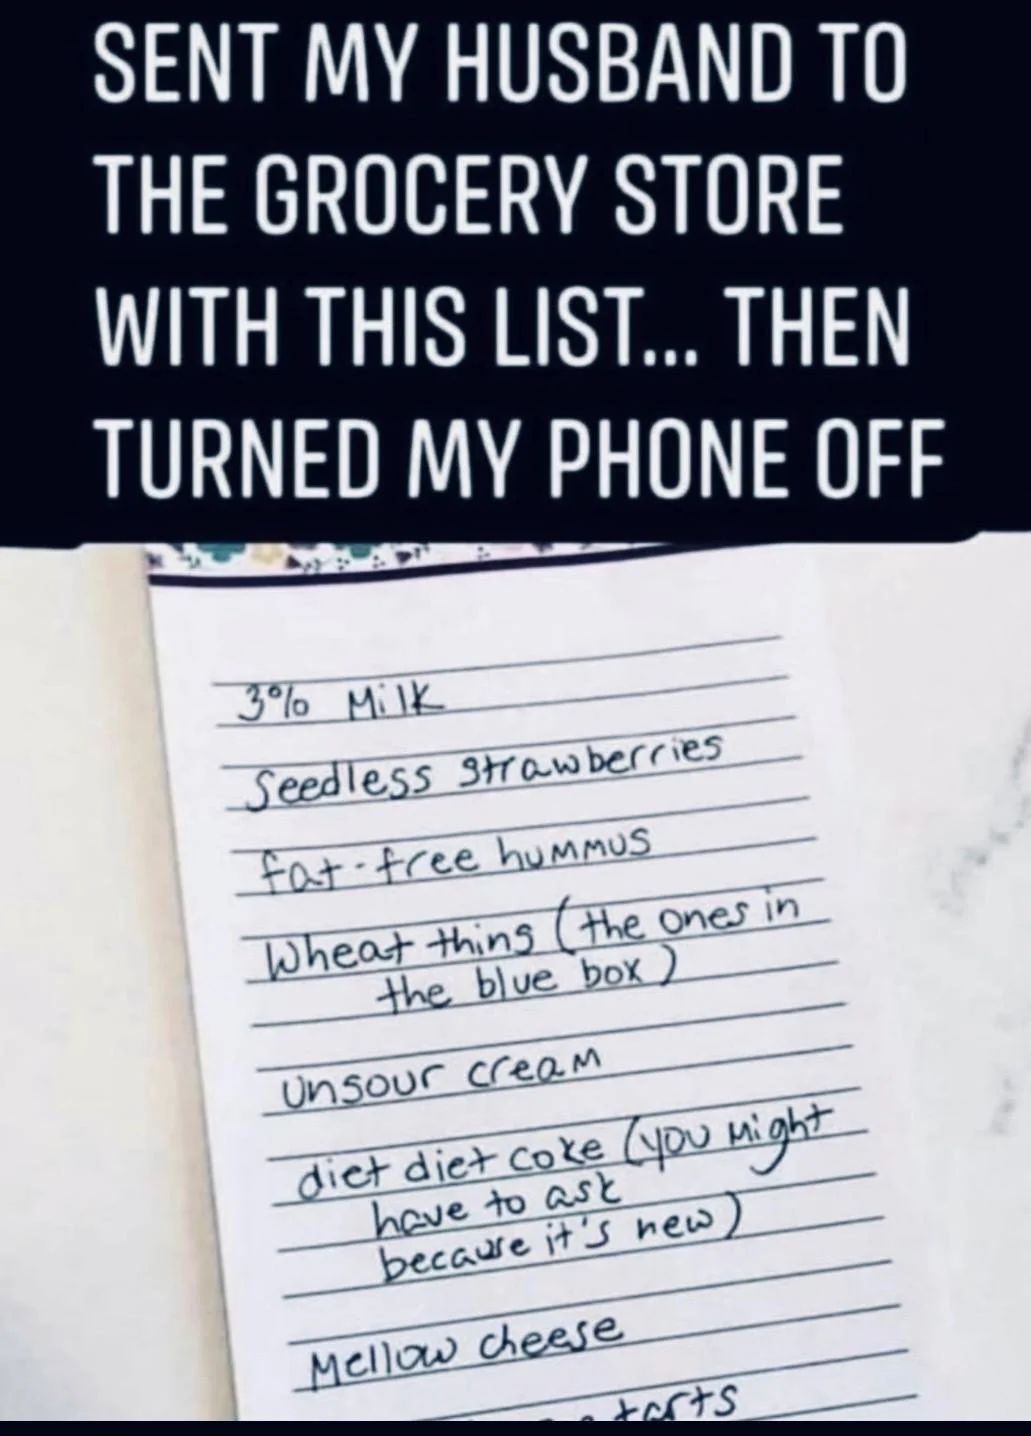 SENT MY HUSBAND TO
THE GROCERY STORE
WITH THIS LIST... THEN
TURNED MY PHONE OFF
3% Milk
Seedless strawberries
fat-free hummus
Wheat thing (the ones in
the blue box)
unsour cream
diet diet coke (you might
have to ask
because it's new)
Mellow cheese
tarts